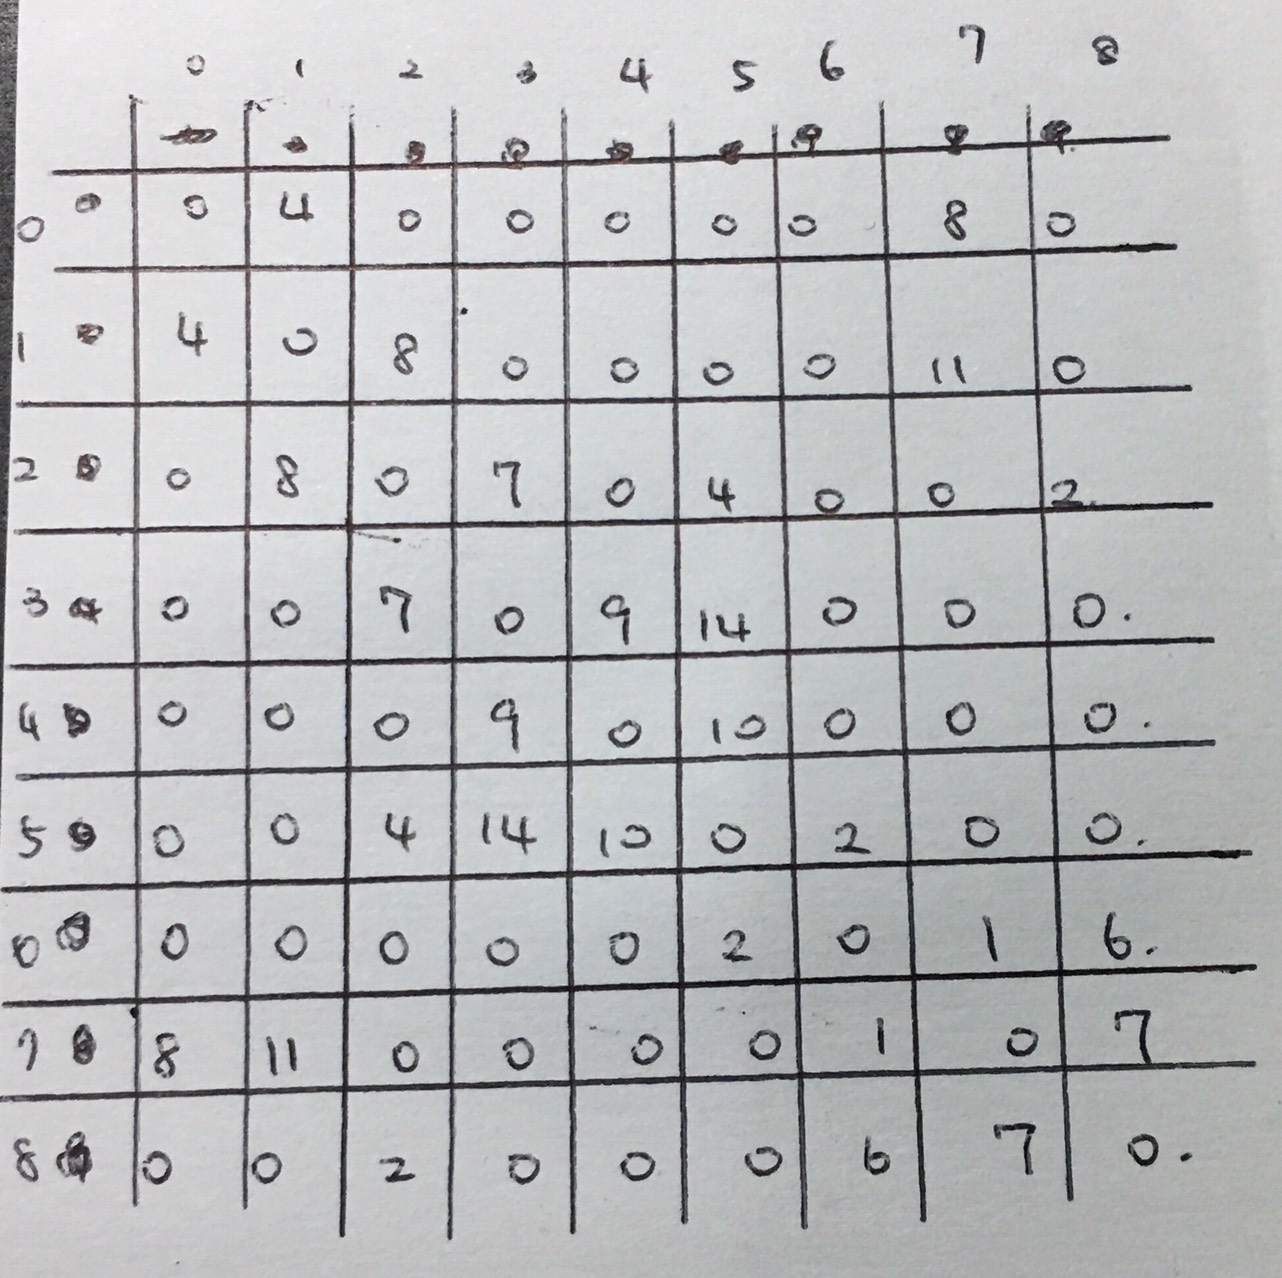 0 1 2 3 4 5 6 7 8
0 0 4 0 0 0 0 0 8 0
1 4 0 8 0 0 0 0 11 0
2 0 8 0 7 0 4 0 0 2.
3 0 0 7 0 9 14 0 0 0.
4 0 0 0 9 0 10 0 0 0.
5 0 0 4 14 10 0 2 0 0.
6 0 0 0 0 0 2 0 1 6.
7 8 11 0 0 0 0 1 0 7
8 0 0 2 0 0 0 6 7 0.